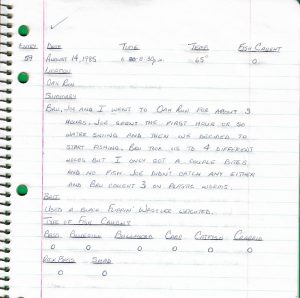 Entry Date Time Temp Fish Caught
59 August 14, 1985 65° 0
Location
Oak Run
Summary
Bru, Joe and I went to Oak Run for about 3
hours. Joe spent the first hour or so
water skiing and then we decided to
start fishing. Bru took us to 4 different
areas but I only got a couple bites
and no fish. Joe didn't catch any either
and Bru caught 3 on plastic worms.
Bait
Used a black Flippin' weighted.
Type of Fish Caught
Bass Bluegill Bullhead Carp Catfish Crappie
0 0 0 0 0 0
Rock Bass Shad
0 0